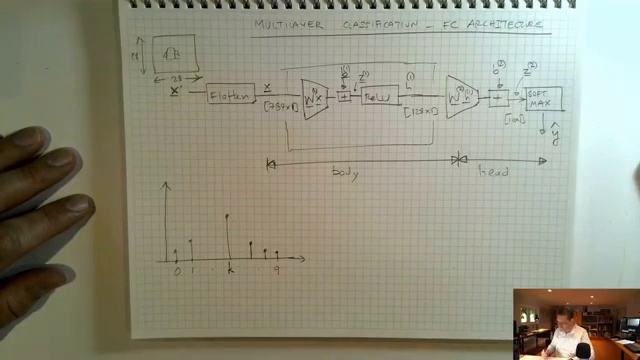 MULTILAYER CLASSIFICATION - FC ARCHITECTURE
28
28
X'
Flatten
x
[784x1]
W⁽¹⁾x
b⁽¹⁾
+
z⁽¹⁾
ReLU
h⁽¹⁾
[128x1]
W⁽²⁾h⁽¹⁾
b⁽²⁾
+
z⁽²⁾
SOFT
MAX
ŷ
body
head
0 1 k 9